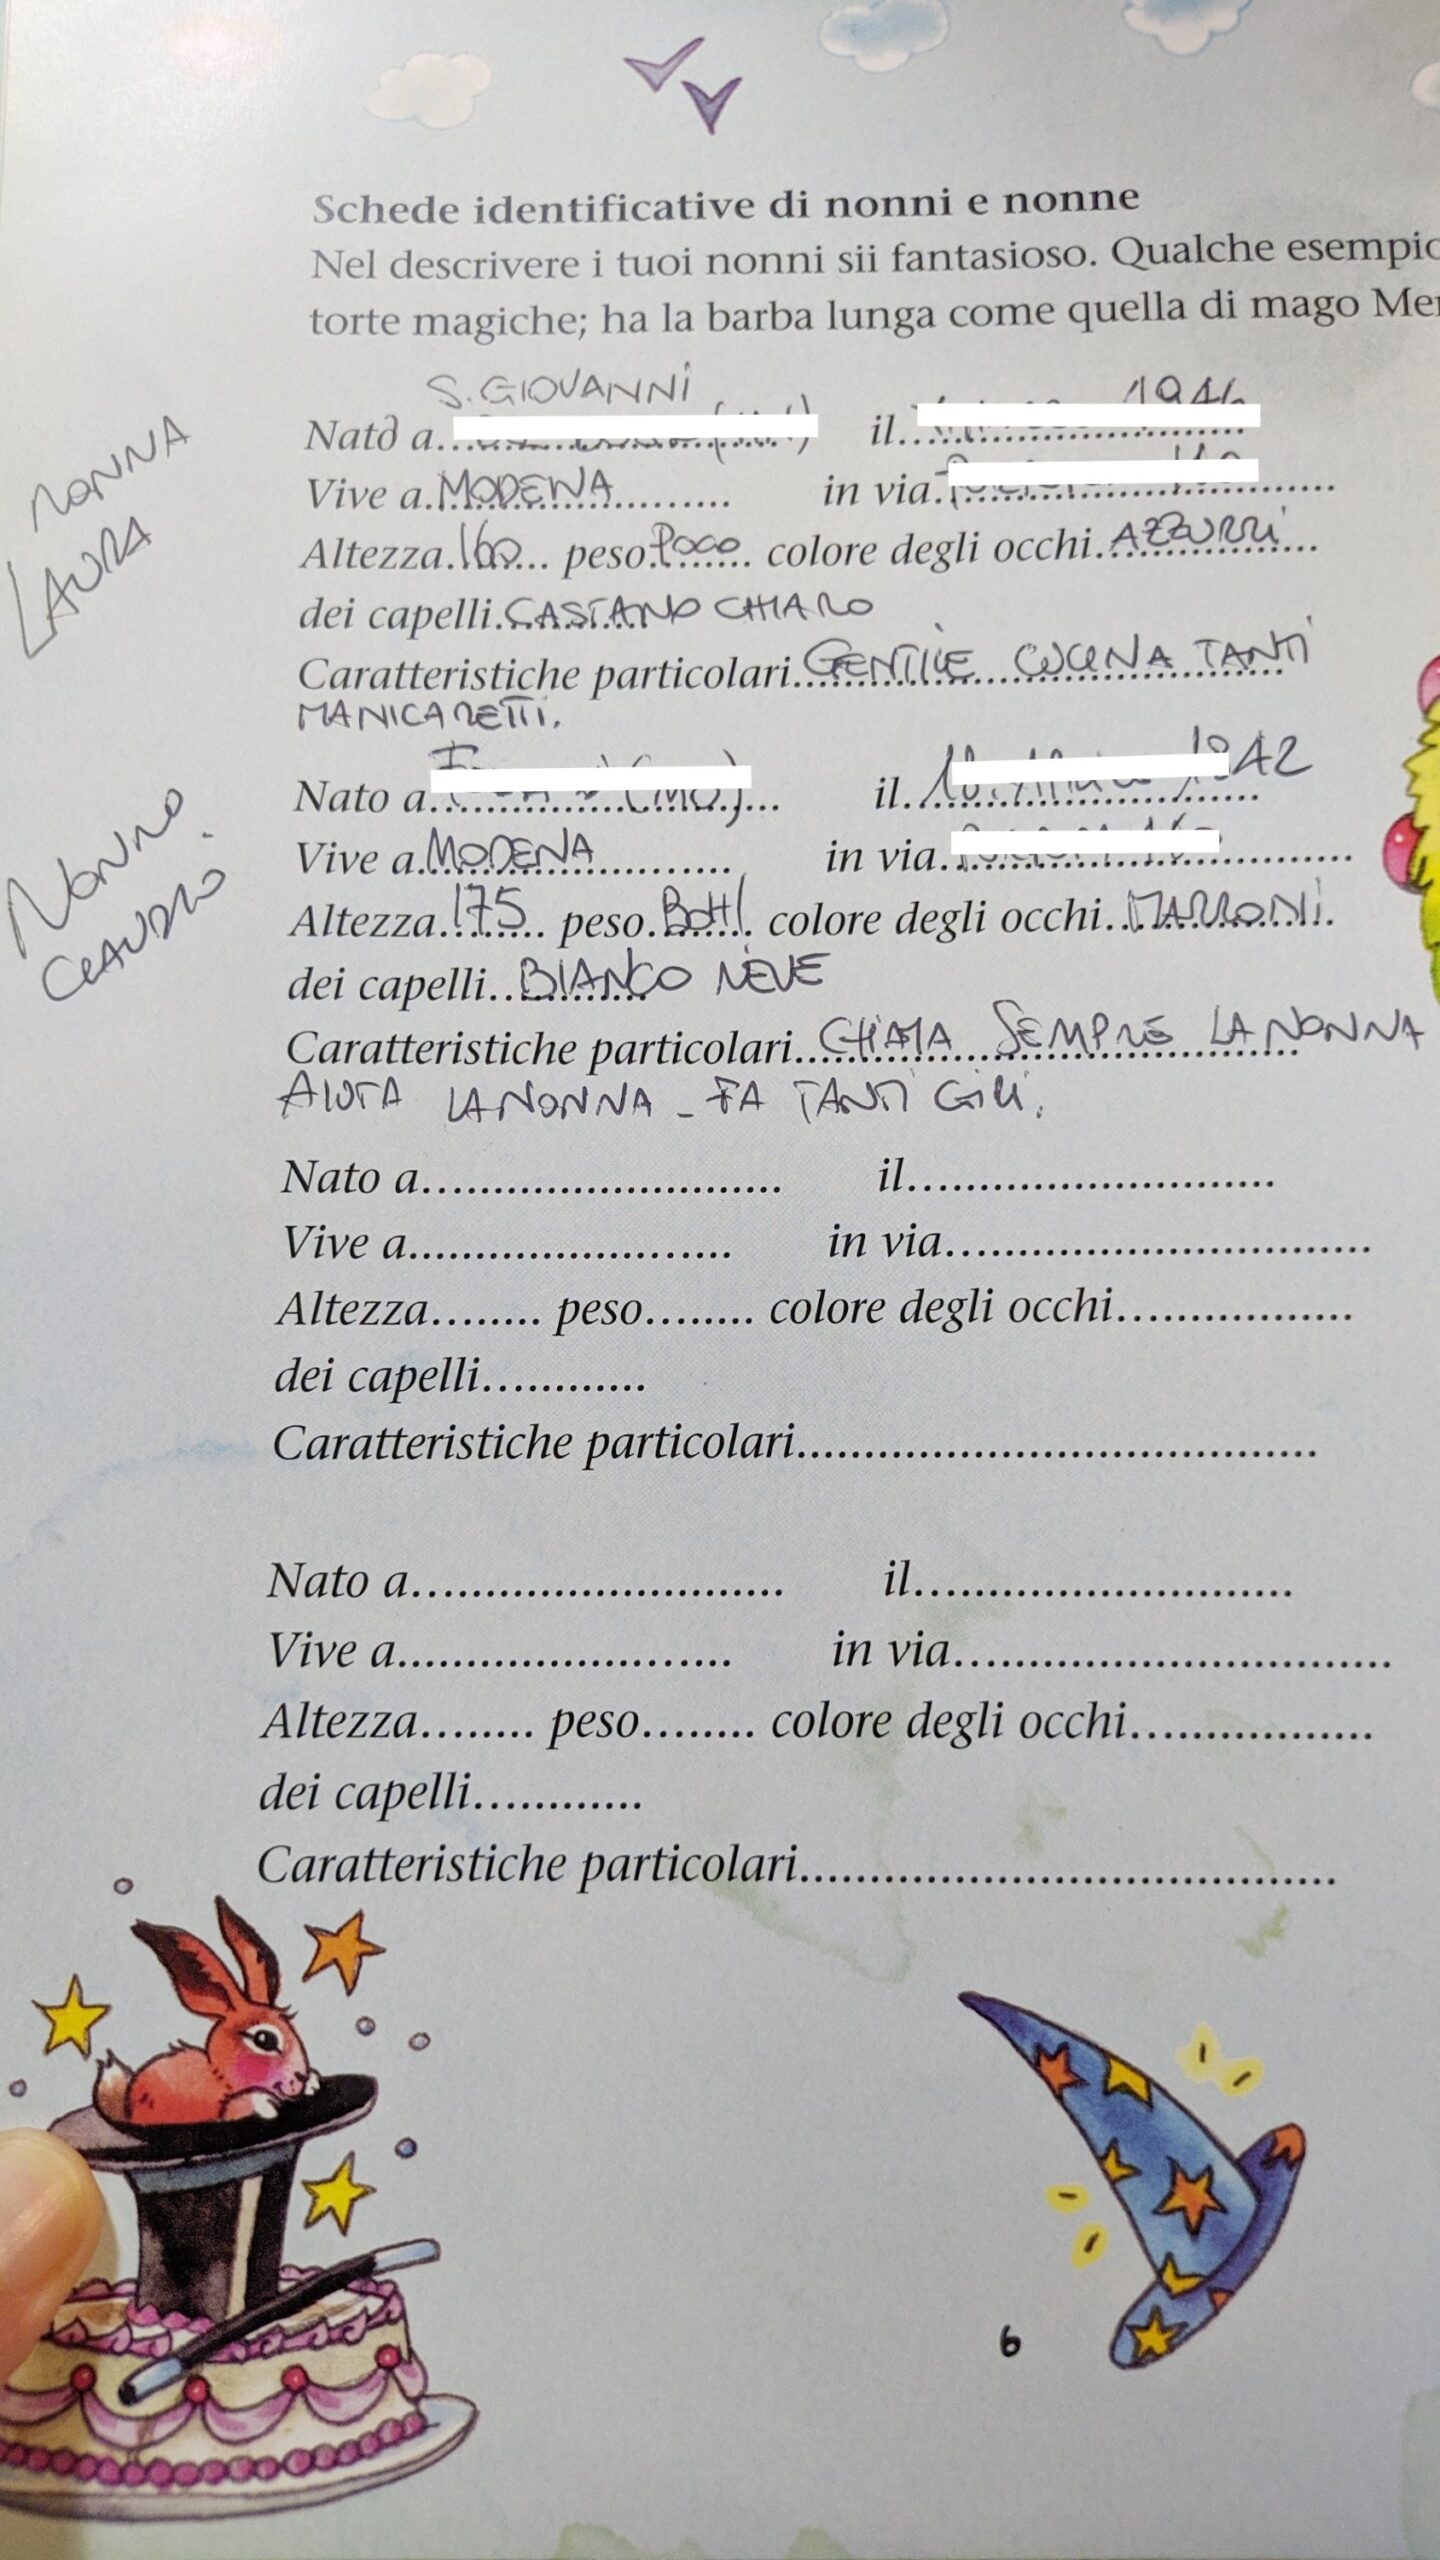 Schede identificative di nonni e nonne
Nel descrivere i tuoi nonni sii fantasioso. Qualche esempio
torte magiche; ha la barba lunga come quella di mago
NONNA
LAURA
S. GIOVANNI
Nato a il 1946
Vive a MODENA in via
Altezza 160 peso POCO colore degli occhi AZZURRI
dei capelli CASTANO CHIARO
Caratteristiche particolari GENTILE CUCINA TANTI
MANICARETTI.
NONNO
CLAUDIO
Nato a (MO) il 1942
Vive a MODENA in via
Altezza 175 peso BOH! colore degli occhi MARRONI.
dei capelli BIANCO NEVE
Caratteristiche particolari CHIAMA SEMPRE LA NONNA
AIUTA LA NONNA - FA TANTI GIRI.
Nato a il
Vive a in via
Altezza peso colore degli occhi
dei capelli
Caratteristiche particolari
Nato a il
Vive a in via
Altezza peso colore degli occhi
dei capelli
Caratteristiche particolari
6